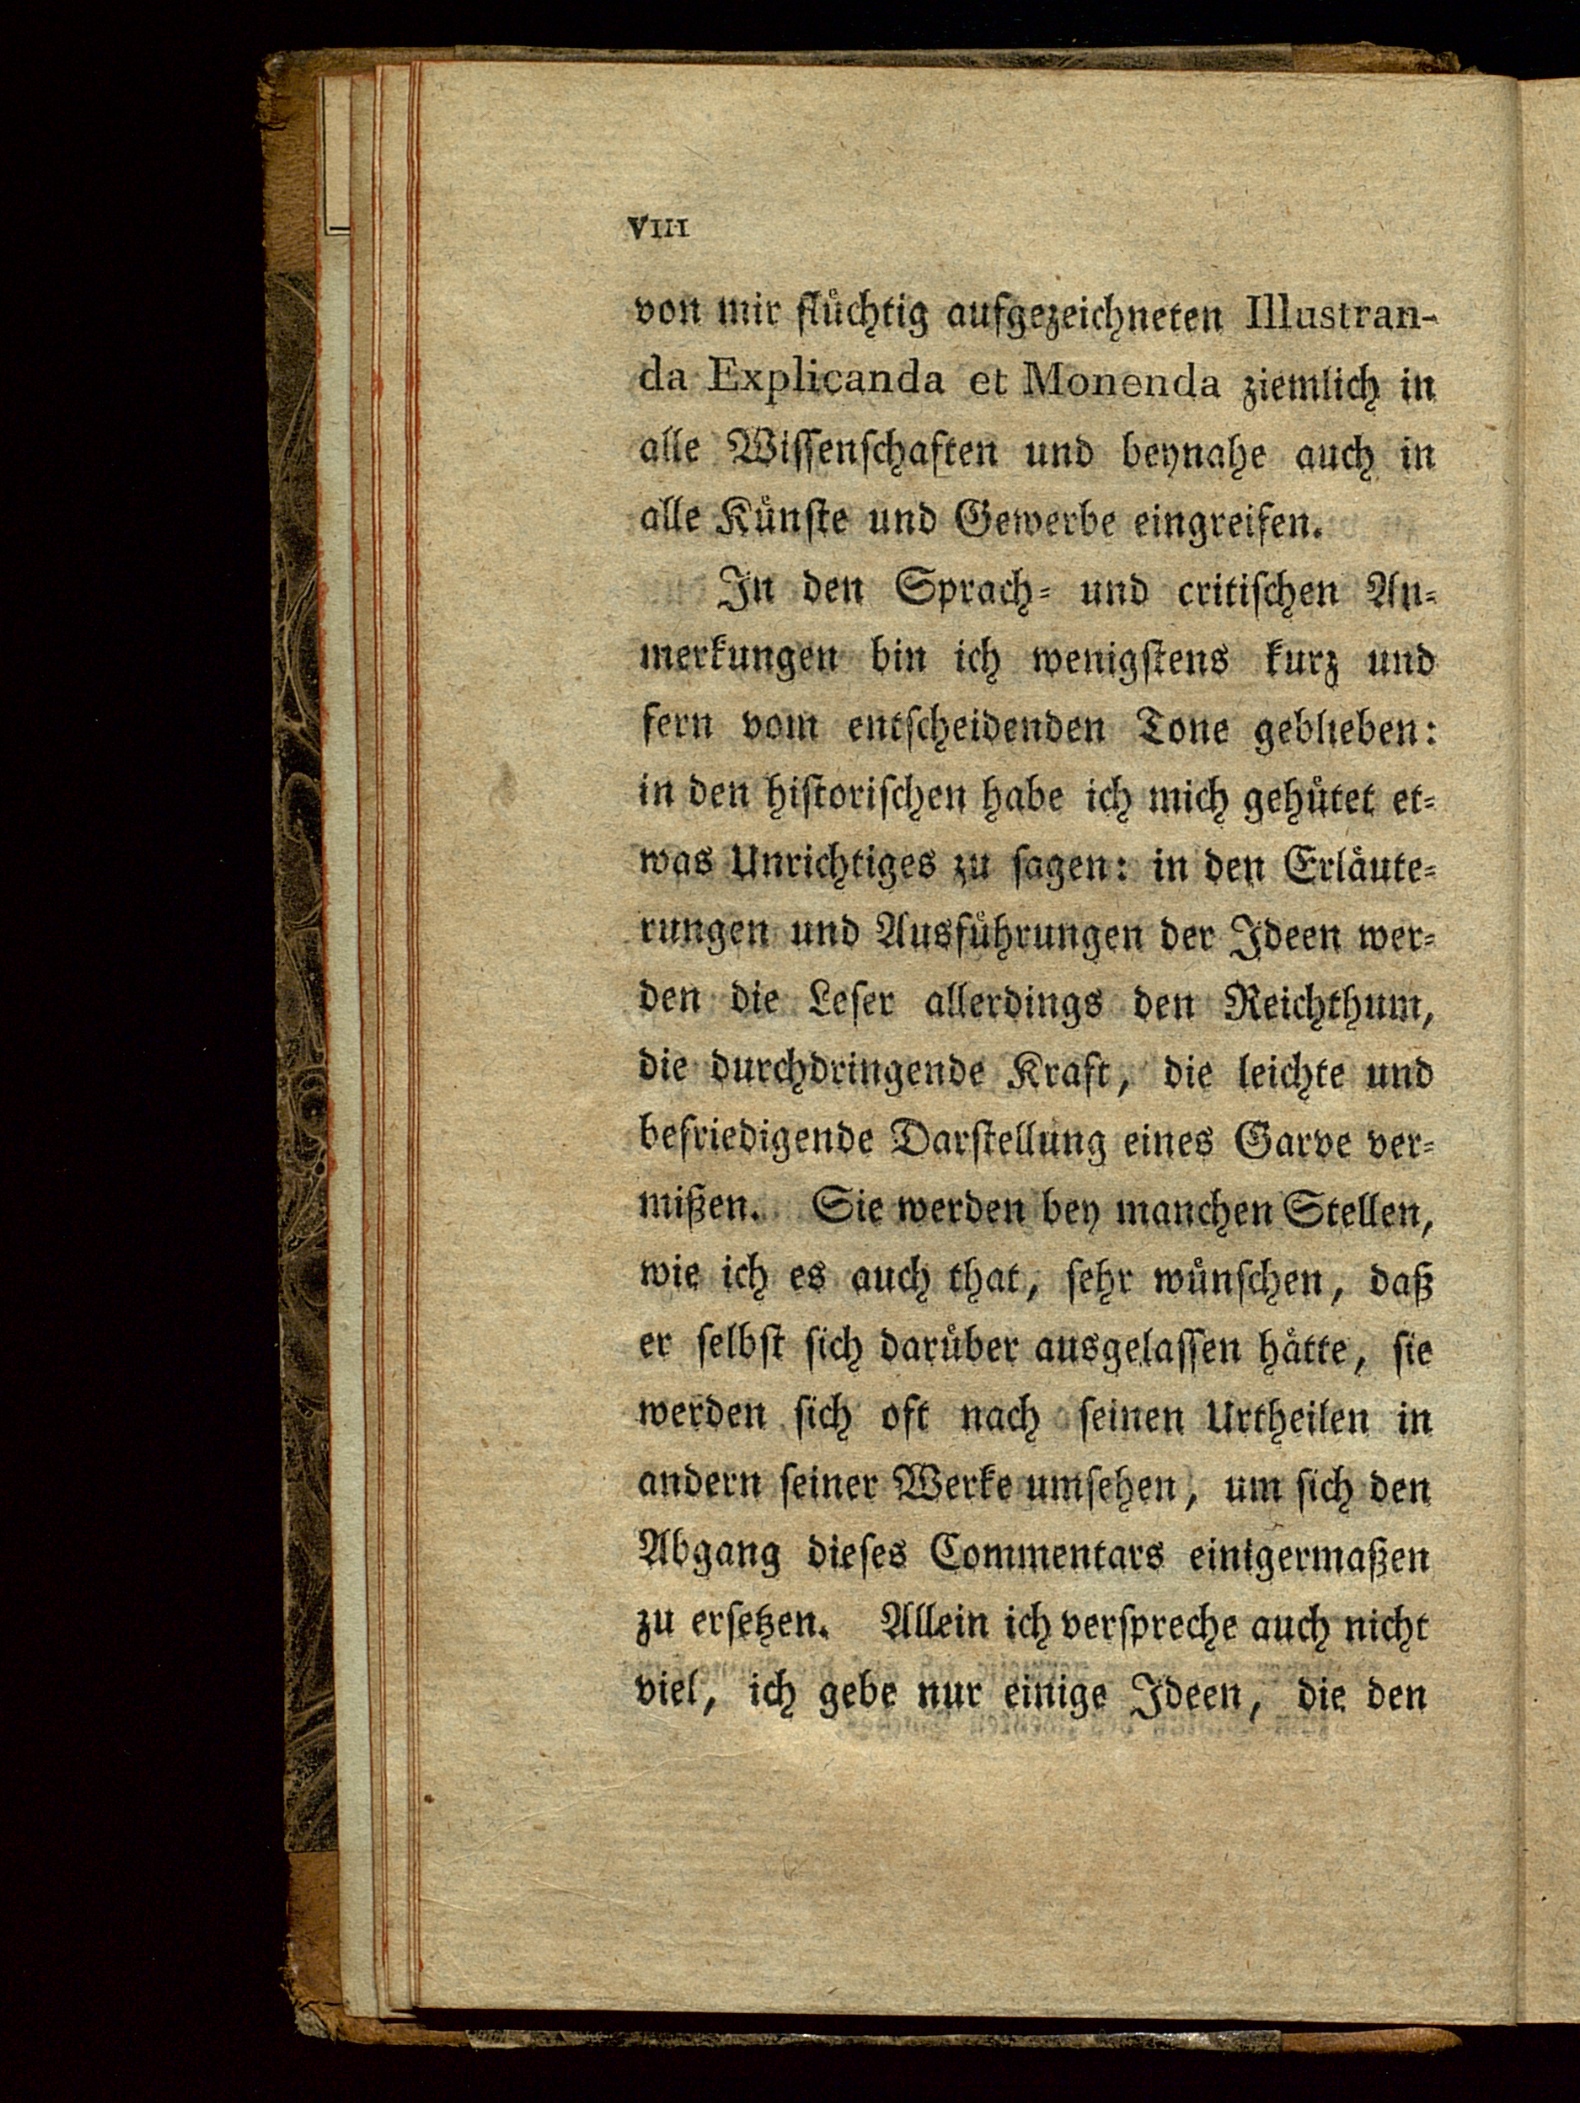 VIII
von mir flüchtig aufgezeichneten Illustran-
da Explicanda et Monenda ziemlich in
alle Wissenschaften und beynahe auch in
alle Künste und Gewerbe eingreifen.
In den Sprach- und critischen An-
merkungen bin ich wenigstens kurz und
fern vom entscheidenden Tone geblieben:
in den historischen habe ich mich gehütet et-
was Unrichtiges zu sagen: in den Erläute-
rungen und Ausführungen der Ideen wer-
den die Leser allerdings den Reichthum,
die durchdringende Kraft, die leichte und
befriedigende Darstellung eines Garve ver-
mißen. Sie werden bey manchen Stellen,
wie ich es auch that, sehr wünschen, daß
er selbst sich darüber ausgelassen hätte, sie
werden sich oft nach seinen Urtheilen in
andern seiner Werke umsehen, um sich den
Abgang dieses Commentars einigermaßen
zu ersetzen. Allein ich verspreche auch nicht
viel, ich gebe nur einige Ideen, die den